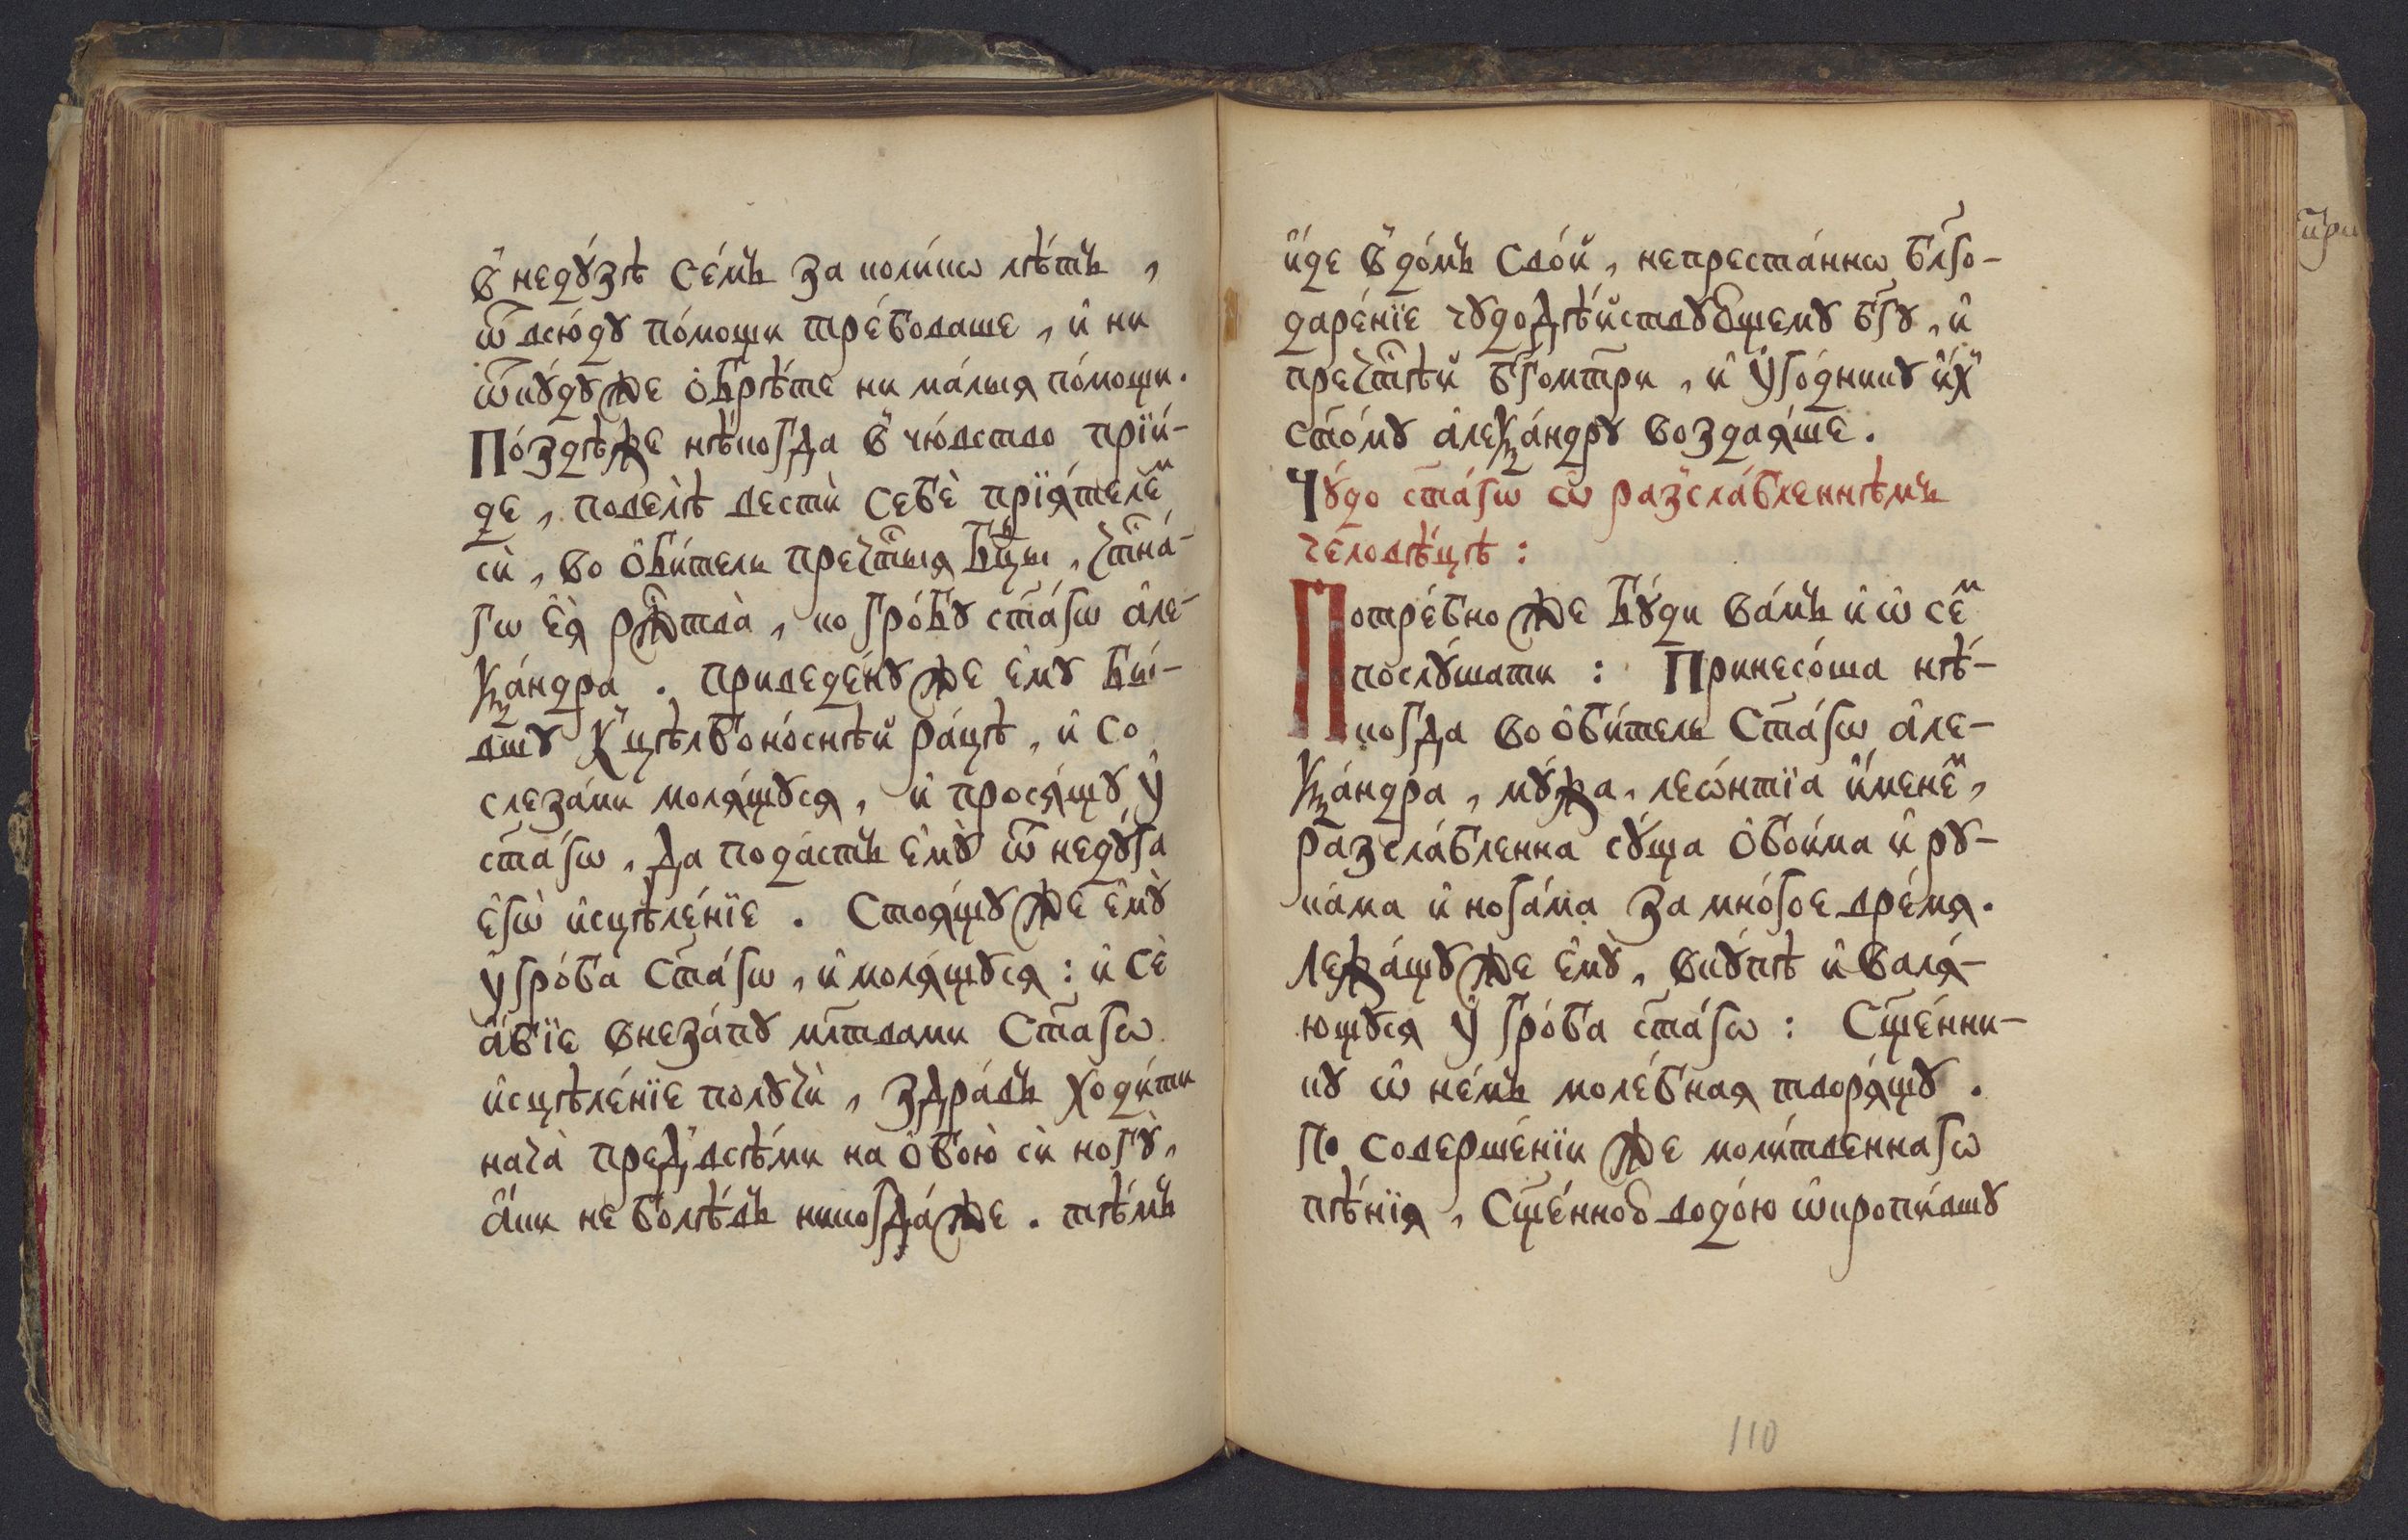 в̾ недꙋ́зѣ се́мъ за коли́кѡ лѣ́тъ ,
ѿ всю́дꙋ по́мощи тре́боваше , и҆ ни
ѿкꙋ́дꙋже ѻ҆брѣ́те ни ма́лыѧ по́мощи .
По́здѣже нѣ́когда в̾ чю́вство прїи́-
де , повелѣ̀ вестѝ себѐ прїѧ́телеⷨ
сѝ , во ѻ҆би́тель пречⷭ҇тыѧ бц҃ы , чⷭ҇тна́-
гѡ є҆ѧ̀ ржⷭ҇тва̀ , ко гро́бꙋ ст҃а́гѡ а҆ле-
ѯа́ндра . приведе́нꙋ же є҆мꙋ бы́-
вшꙋ к̾ цѣлбоно́снѣй ра́цѣ , и҆ со
слеза́ми молѧ́щꙋсѧ , и҆ просѧ́щꙋ ᲂу҆
ст҃а́гѡ , да пода́стъ є҆мꙋ̀ ѿ недꙋ́га
є҆гѡ̀ и҆сцѣле́нїе . Стоѧ́щꙋ же є҆мꙋ̀
ᲂу҆ гро́ба ст҃а́гѡ , и҆ молѧ́щꙋсѧ : и҆ сѐ
а҆́бїе внеза́пꙋ мл҃твами ст҃агѡ
и҆сцѣле́нїе полꙋчѝ , здра́въ ходи́ти
нача̀ пред̾ всѣ́ми на ѻ҆бою̀ сѝ ногꙋ̀ ,
а҆́ки не болѣ́въ никогда́же . тѣ́мъ
и҆́де в̾ до́мъ сво́й , непреста́ннѡ бл҃го-
даре́нїе чꙋдодѣ́йствꙋющемꙋ бг҃ꙋ , и҆
пречⷭ҇тѣй бг҃омт҃ри , и҆ ᲂу҆го́дникꙋ и҆́х̾
ст҃о́мꙋ а҆леѯа́ндрꙋ воздаѧ́ше .
Чꙋ́до ст҃а́гѡ ѡ҆ раз̾сла́бленнѣмъ
человѣ́цѣ :
Потре́бно же бꙋ́ди ва́мъ и҆ ѡ҆ сеⷨ
послꙋ́шати : Принесо́ша нѣ́-
когда во ѻ҆би́тель ст҃а́гѡ а҆ле-
ѯа́ндра , мꙋ́жа , леѡ́нтїа и҆́менеⷨ ,
разсла́бленна сꙋ́ща ѻ҆бои́ма и҆ рꙋ-
ка́ма и҆ нога́ма за мно́гое вре́мѧ .
Лежа́щꙋ же є҆мꙋ̀ , вкꙋ́пѣ и҆ валѧ́-
ющꙋсѧ ᲂу҆ гро́ба ст҃а́гѡ : Сщ҃е́нни-
кꙋ ѡ҆ не́мъ моле́бнаѧ творѧ́щꙋ .
По соверше́нїи же моли́твеннагѡ
пѣ́нїѧ , Сщ҃е́нною водо́ю ѡ҆кропи́вшꙋ
110